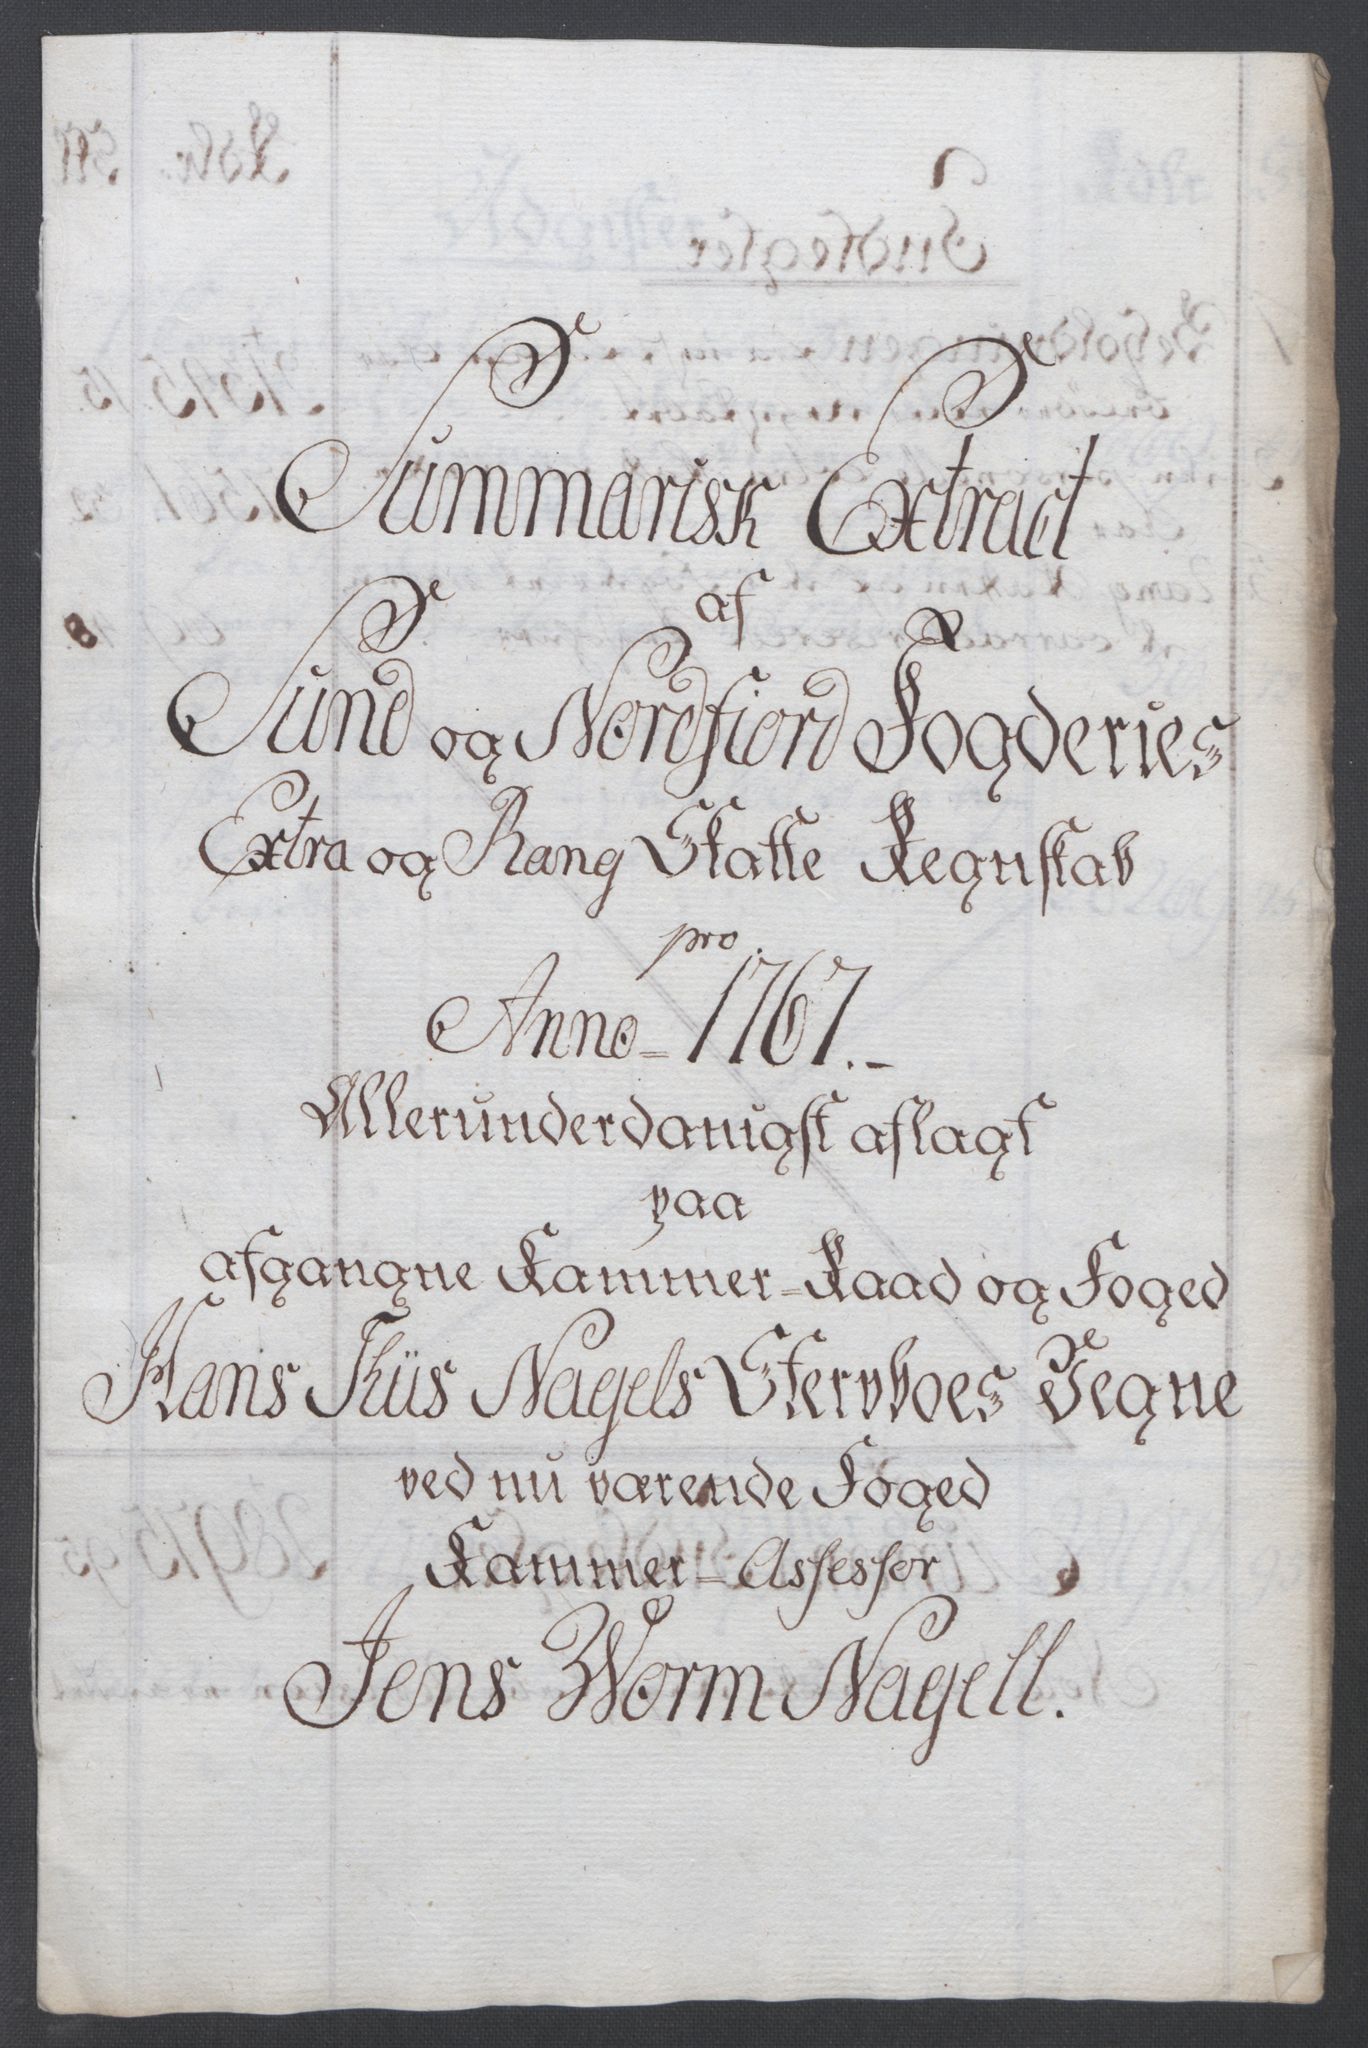 Summarisk Extract
af
Sund og Nordfiord Fogderies
Extra og Rang Skatte Regnskab
pro
Anno 1767.
Allerunderdanigst aflagt
paa
afgangne Kammer-Raad og Foged
Hans Thiis Nagels Stervboes Vegne
ved nu værende Foged
Kammer-Assessor
Jens Worm Nagell.